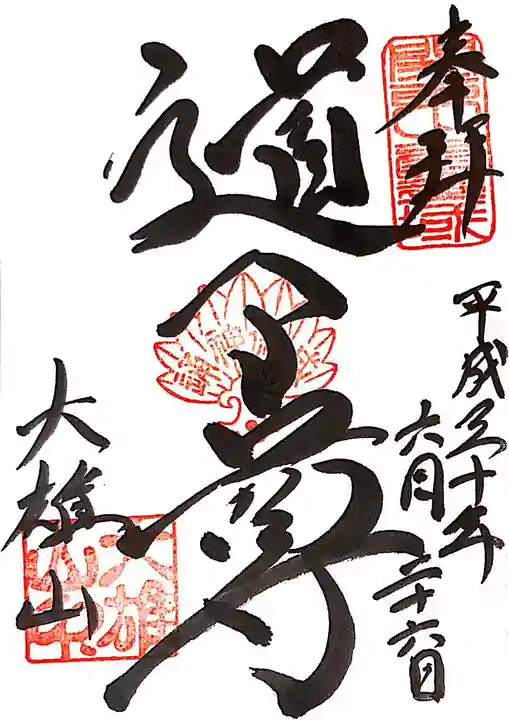 奉拝
平成三十年
六月二十六日
道了尊
大雄山